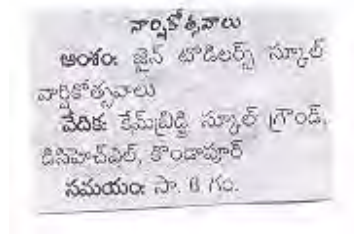 వార్షికోత్సవాలు
అంశం: జైన్ టాడిలర్స్ స్కూల్
వార్షికోత్సవాలు
వేదిక: కేమ్‌బ్రిడ్జి స్కూల్ గ్రౌండ్,
డిసిహెచ్‌ఎల్, కొండాపూర్
సమయం: సా. 6 గం.